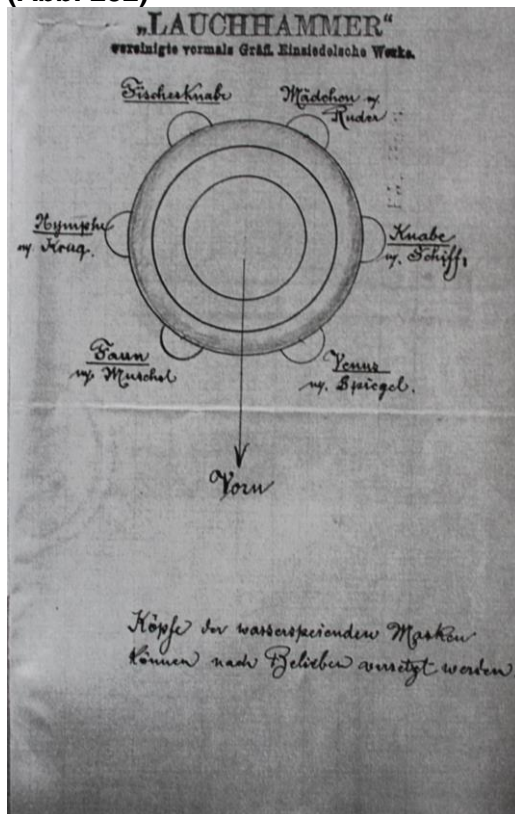 „LAUCHHAMMER“
vereinigte vormals Gräfl. Einsiedelsche Werke.
Fischerknabe
Mädchen m.
Ruder
Nymphe
m. Krug.
Knabe
m. Schiff,
Faun
m. Muschel
Venus
m. Spiegel.
Vorn
Köpfe der wasserspeienden Masken
können nach Belieben versetzt werden